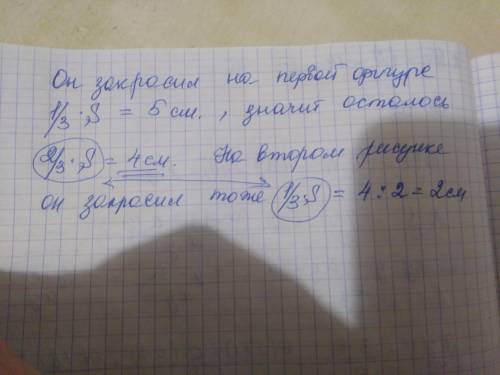 Он закрасил на первой фигуре
1/3 · S = 5 см. , значит осталось
2/3 · S = 4 см. На втором рисунке
он закрасил тоже 1/3 S = 4 : 2 = 2 см